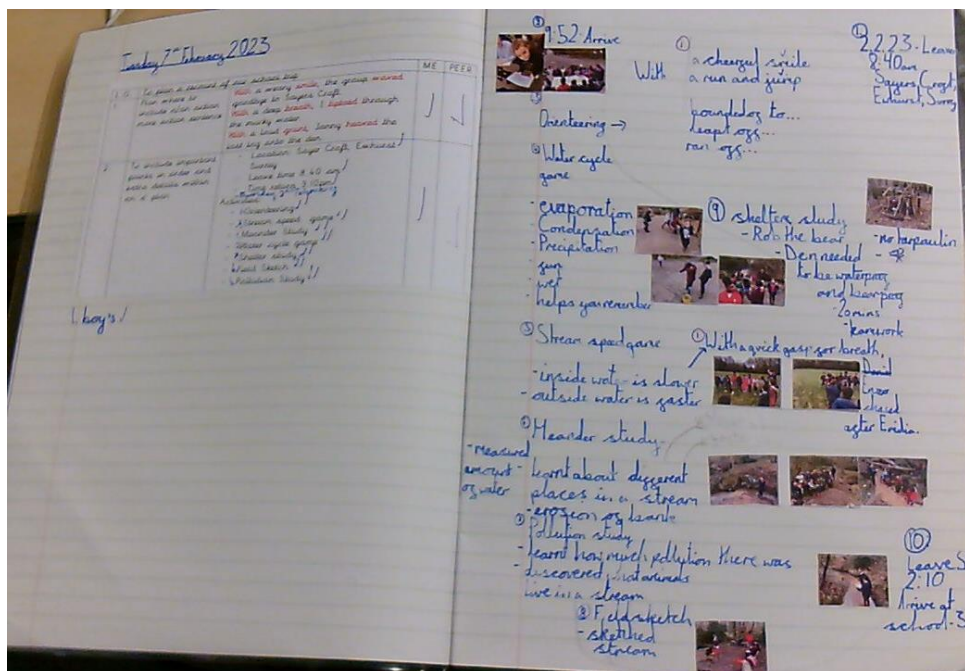 Tuesday 7th February 2023
L.O
ME
PEER
To plan a recount of our school trip
Plan where to
include
more action sentence
With a weary smile, the group waved
goodbye to Sayers Croft.
With a deep breath, I
through
the murky water.
With a loud grunt, Jenny heaved the
last log onto the den.
To include important
points in order and
extra details within
a plan
- Location: Sayer Croft, Ewhurst
Surrey
Leave time 8.40 am
Activities:
- Orienteering
- Stream speed game
- Meander Study
- Water cycle game
- Shelter study
- Field Sketch
- Pollution Study
1. boy's
9:52. Arrive
With
a cheerful smile
a run and jump
bounded og to...
leapt ogg...
ran ogg...
① 2.2.23-Leave
8:40am
Sayers Croft,
Ewhurst, Surrey
Orienteering →
Water cycle
game
- evaporation
- Condensation
- Precipitation
- sun
- wet
- helps you remember
⑨ shelters study
- Rob the bear
- Den needed
to be waterproof
and bearproof
- 20 mins
- teamwork
- no tarpaulin
Stream speed game
- inside water is slower
- outside water is faster
With a quick gasp for breath,
Daniel
Enzo
chased
after Eridia.
Meander study
- measured
amount
of water
- learnt about different
places in a stream
- erosion of bank
Pollution study
- learnt how much pollution there was
- discovered what animals
live in a stream
⑧ Field sketch
- sketched
stream
⑩
Leave S
2:10
Arrive at
school-3